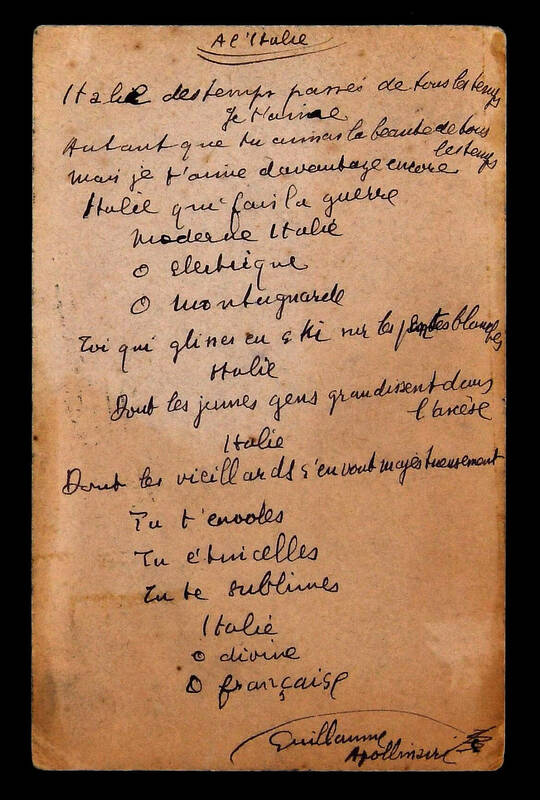 A l'Italie
Italie des temps passés de tous les temps
Je t'aime
Autant que tu aimas la beauté de tous les temps
Mais je t'aime davantage encore
Italie qui fais la guerre
Moderne Italie
O Electrique
O Montagnarde
Toi qui glisses en ski sur les pentes blanches
Italie
Dont les jeunes gens grandissent dans l'ascèse
Italie
Dont les vieillards s'en vont majestueusement
Tu t'envoles
Tu étincelles
Tu te sublimes
Italie
O divine
O française
Guillaume
Apollinaire